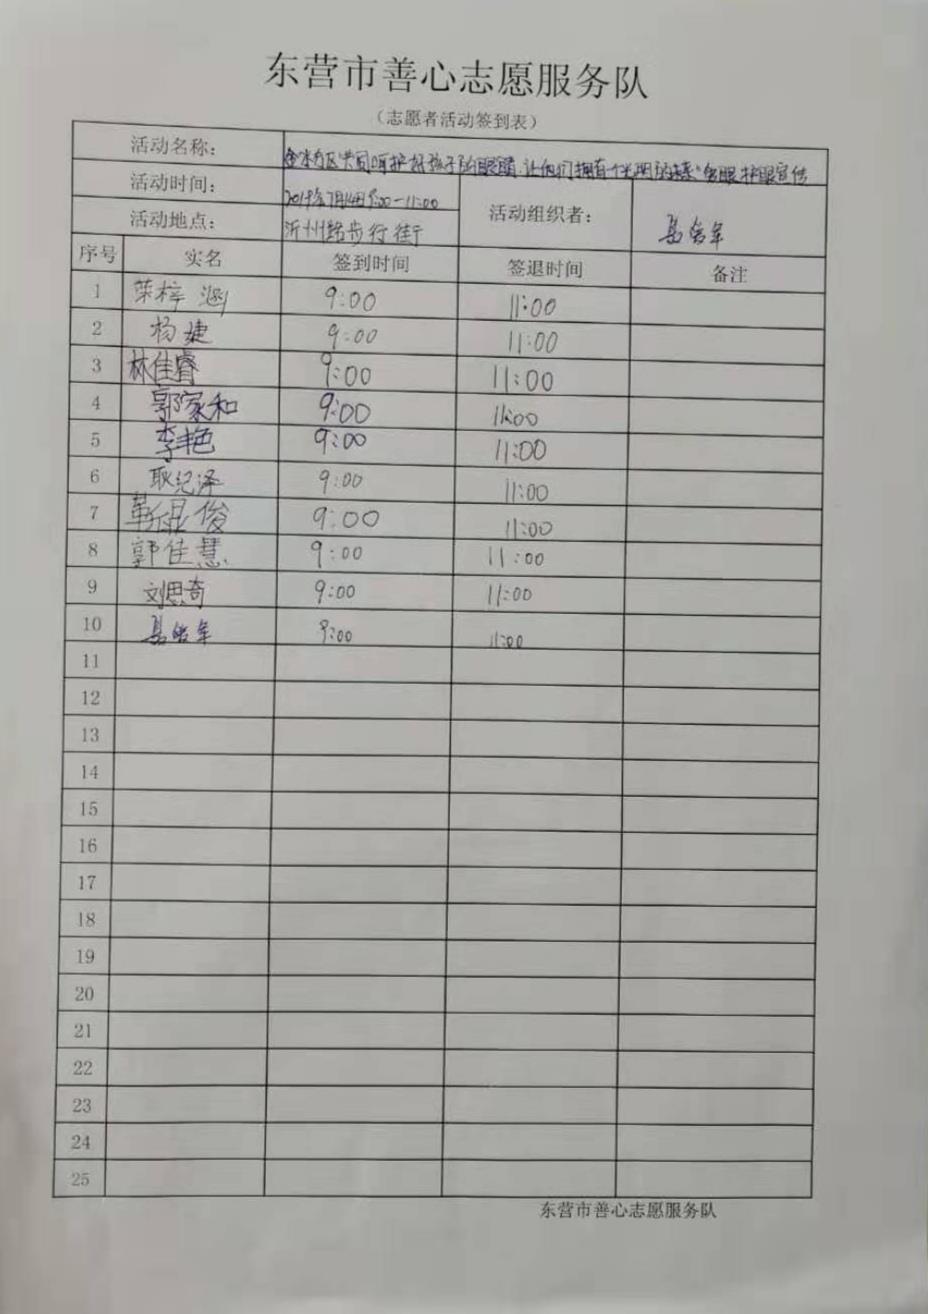 东营市善心志愿服务队
（志愿者活动签到表）
活动名称： 共同呵护好孩子的眼睛，让他们拥有一个光明的未来"爱眼护眼宣传
活动时间： 2019年7月14日9:00-11:00
活动地点： 沂州路步行街 活动组织者：
序号 实名 签到时间 签退时间 备注
1 荣梓涵 9:00 11:00
2 杨婕 9:00 11:00
3 林佳睿 9:00 11:00
4 郭家和 9:00 11:00
5 李艳 9:00 11:00
6 耿纪泽 9:00 11:00
7 靳显俊 9:00 11:00
8 郭佳慧 9:00 11:00
9 刘思奇 9:00 11:00
10 9:00 11:00
11
12
13
14
15
16
17
18
19
20
21
22
23
24
25
东营市善心志愿服务队